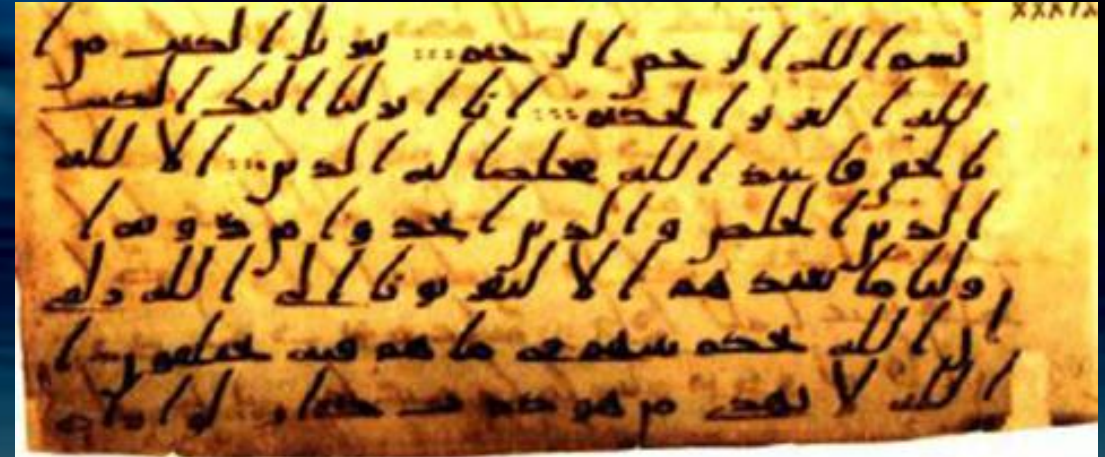 XXXIX
بسم الله الرحمن الرحيم تنزيل الكتب من ا
لله العزيز الحكيم انا انزلنا اليك الكتب
بالحق فاعبد الله مخلصا له الدين الا لله
الدين الخلص والذين اتخذوا من دونه ا
وليا ما نعبدهم الا ليقربونا الى الله زلفى
ان الله يحكم بينهم في ما هم فيه يختلفون ا
ن الله لا يهدي من هو كذب كفار لو اراد